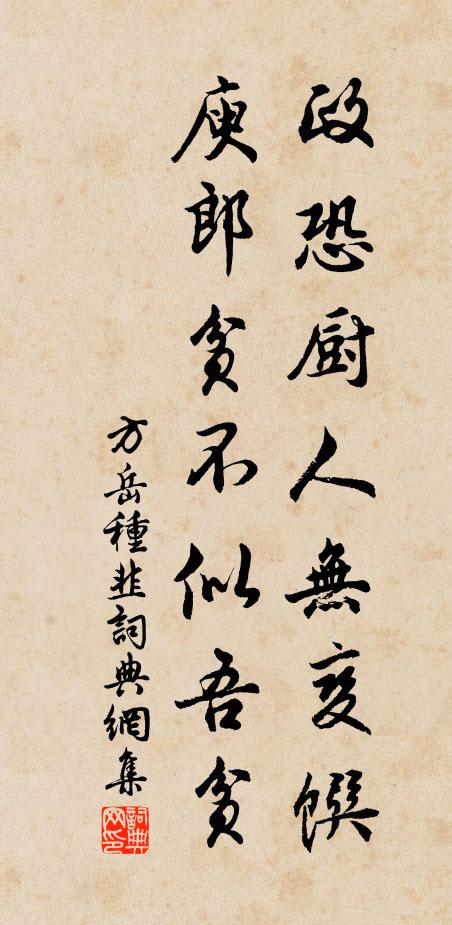 政恐厨人無变饌
庾郎貧不似吾貧
方岳種韭詞典網集
詞典网印